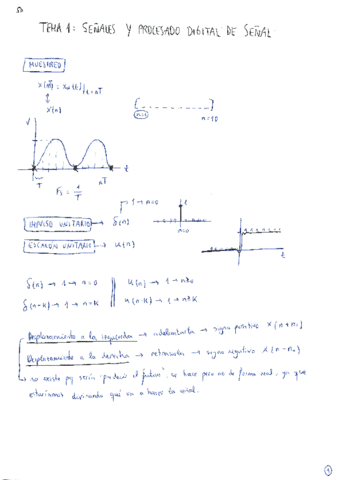 TEMA 1: SEÑALES Y PROCESADO DIGITAL DE SEÑAL
MUESTREO
x(nT) = xa(t)|t=nT
x(n)
n=10
V
t
T
nT
Fs = 1/T
1 → n=0
IMPULSO UNITARIO → δ(n)
n=0
ESCALÓN UNITARIO → u(n)
t
δ(n) → 1 → n=0
u(n) → 1 → n≥0
δ(n-k) → 1 → n=k
u(n-k) → 1 → n≥k
Desplazamiento a la izquierda → adelantarla → signo positivo x(n+n₀)
Desplazamiento a la derecha → retrasarla → signo negativo x(n-n₀)
no existe pq sería "predecir el futuro", se hace pero no de forma real, ya que
estaríamos adivinando qué va a hacer la señal.
1